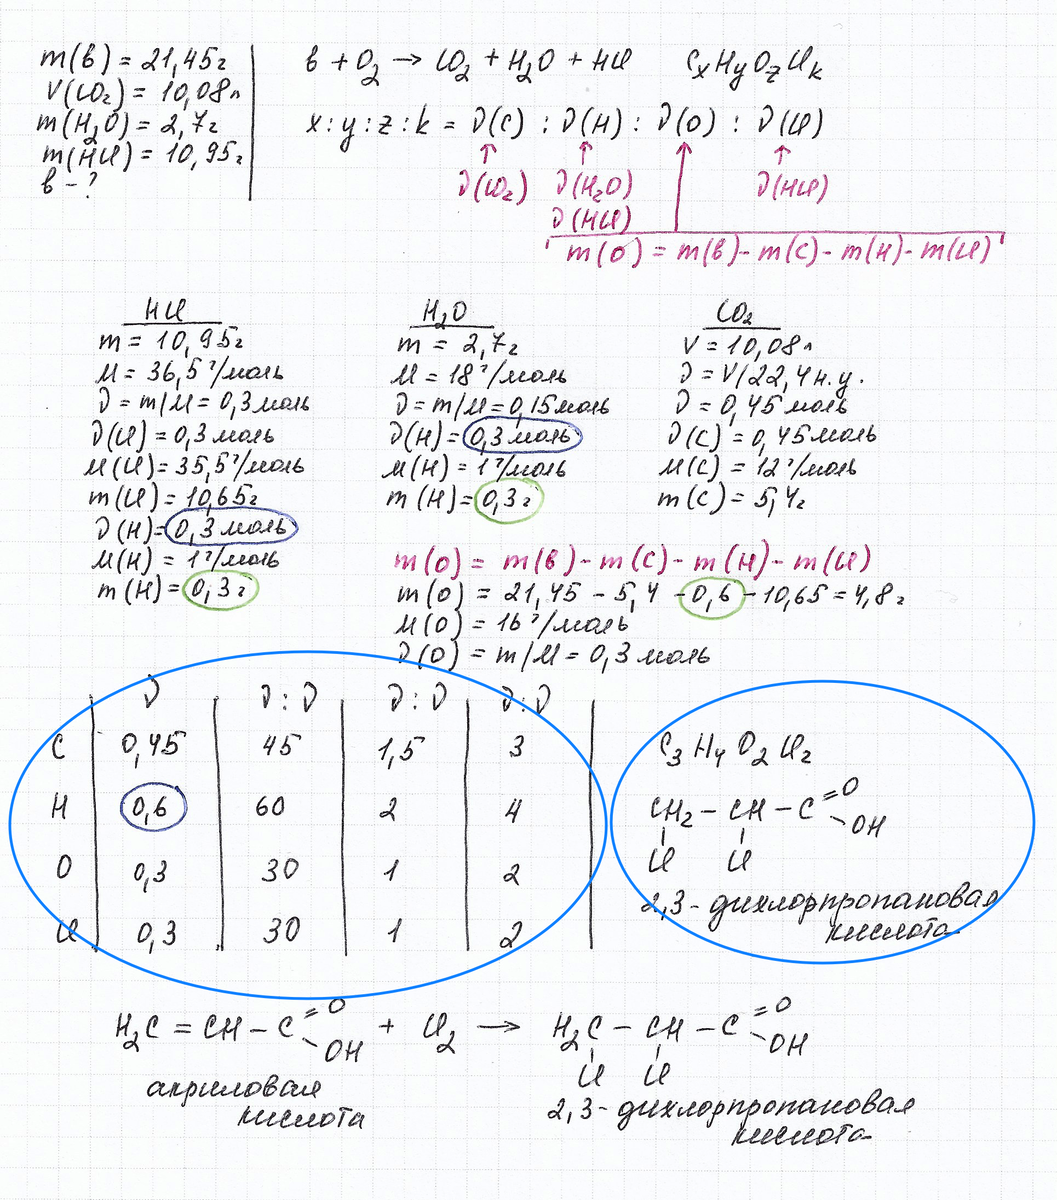 m(в) = 21,45г
V(CO₂) = 10,08л
m(H₂O) = 2,7г
m(HCl) = 10,95г
в - ?
в + O₂ → CO₂ + H₂O + HCl CxHyOzClk
x : y : z : k = ν(C) : ν(H) : ν(O) : ν(Cl)
↑ ↑ ↑ ↑
ν(CO₂) ν(H₂O) ν(HCl)
ν(HCl)
m(O) = m(в) - m(C) - m(H) - m(Cl)
HCl
m = 10,95г
M = 36,5 г/моль
ν = m/M = 0,3 моль
ν(Cl) = 0,3 моль
M(Cl) = 35,5 г/моль
m(Cl) = 10,65г
ν(H) = 0,3 моль
M(H) = 1 г/моль
m(H) = 0,3 г
H₂O
m = 2,7г
M = 18 г/моль
ν = m/M = 0,15 моль
ν(H) = 0,3 моль
M(H) = 1 г/моль
m(H) = 0,3 г
CO₂
V = 10,08 л
ν = V/22,4 н.у.
ν = 0,45 моль
ν(C) = 0,45 моль
M(C) = 12 г/моль
m(C) = 5,4г
m(O) = m(в) - m(C) - m(H) - m(Cl)
m(O) = 21,45 - 5,4 - 0,6 - 10,65 = 4,8г
M(O) = 16 г/моль
ν(O) = m/M = 0,3 моль
ν ν : ν ν : ν ν : ν
C 0,45 45 1,5 3
H 0,6 60 2 4
O 0,3 30 1 2
Cl 0,3 30 1 2
C₃H₄O₂Cl₂
=O
CH₂ - CH - C
- OH
Cl Cl
2,3 - дихлорпропановая
кислота
=O =O
H₂C = CH - C + Cl₂ → H₂C - CH - C
- OH - OH
Cl Cl
акриловая
кислота
2,3 - дихлорпропановая
кислота